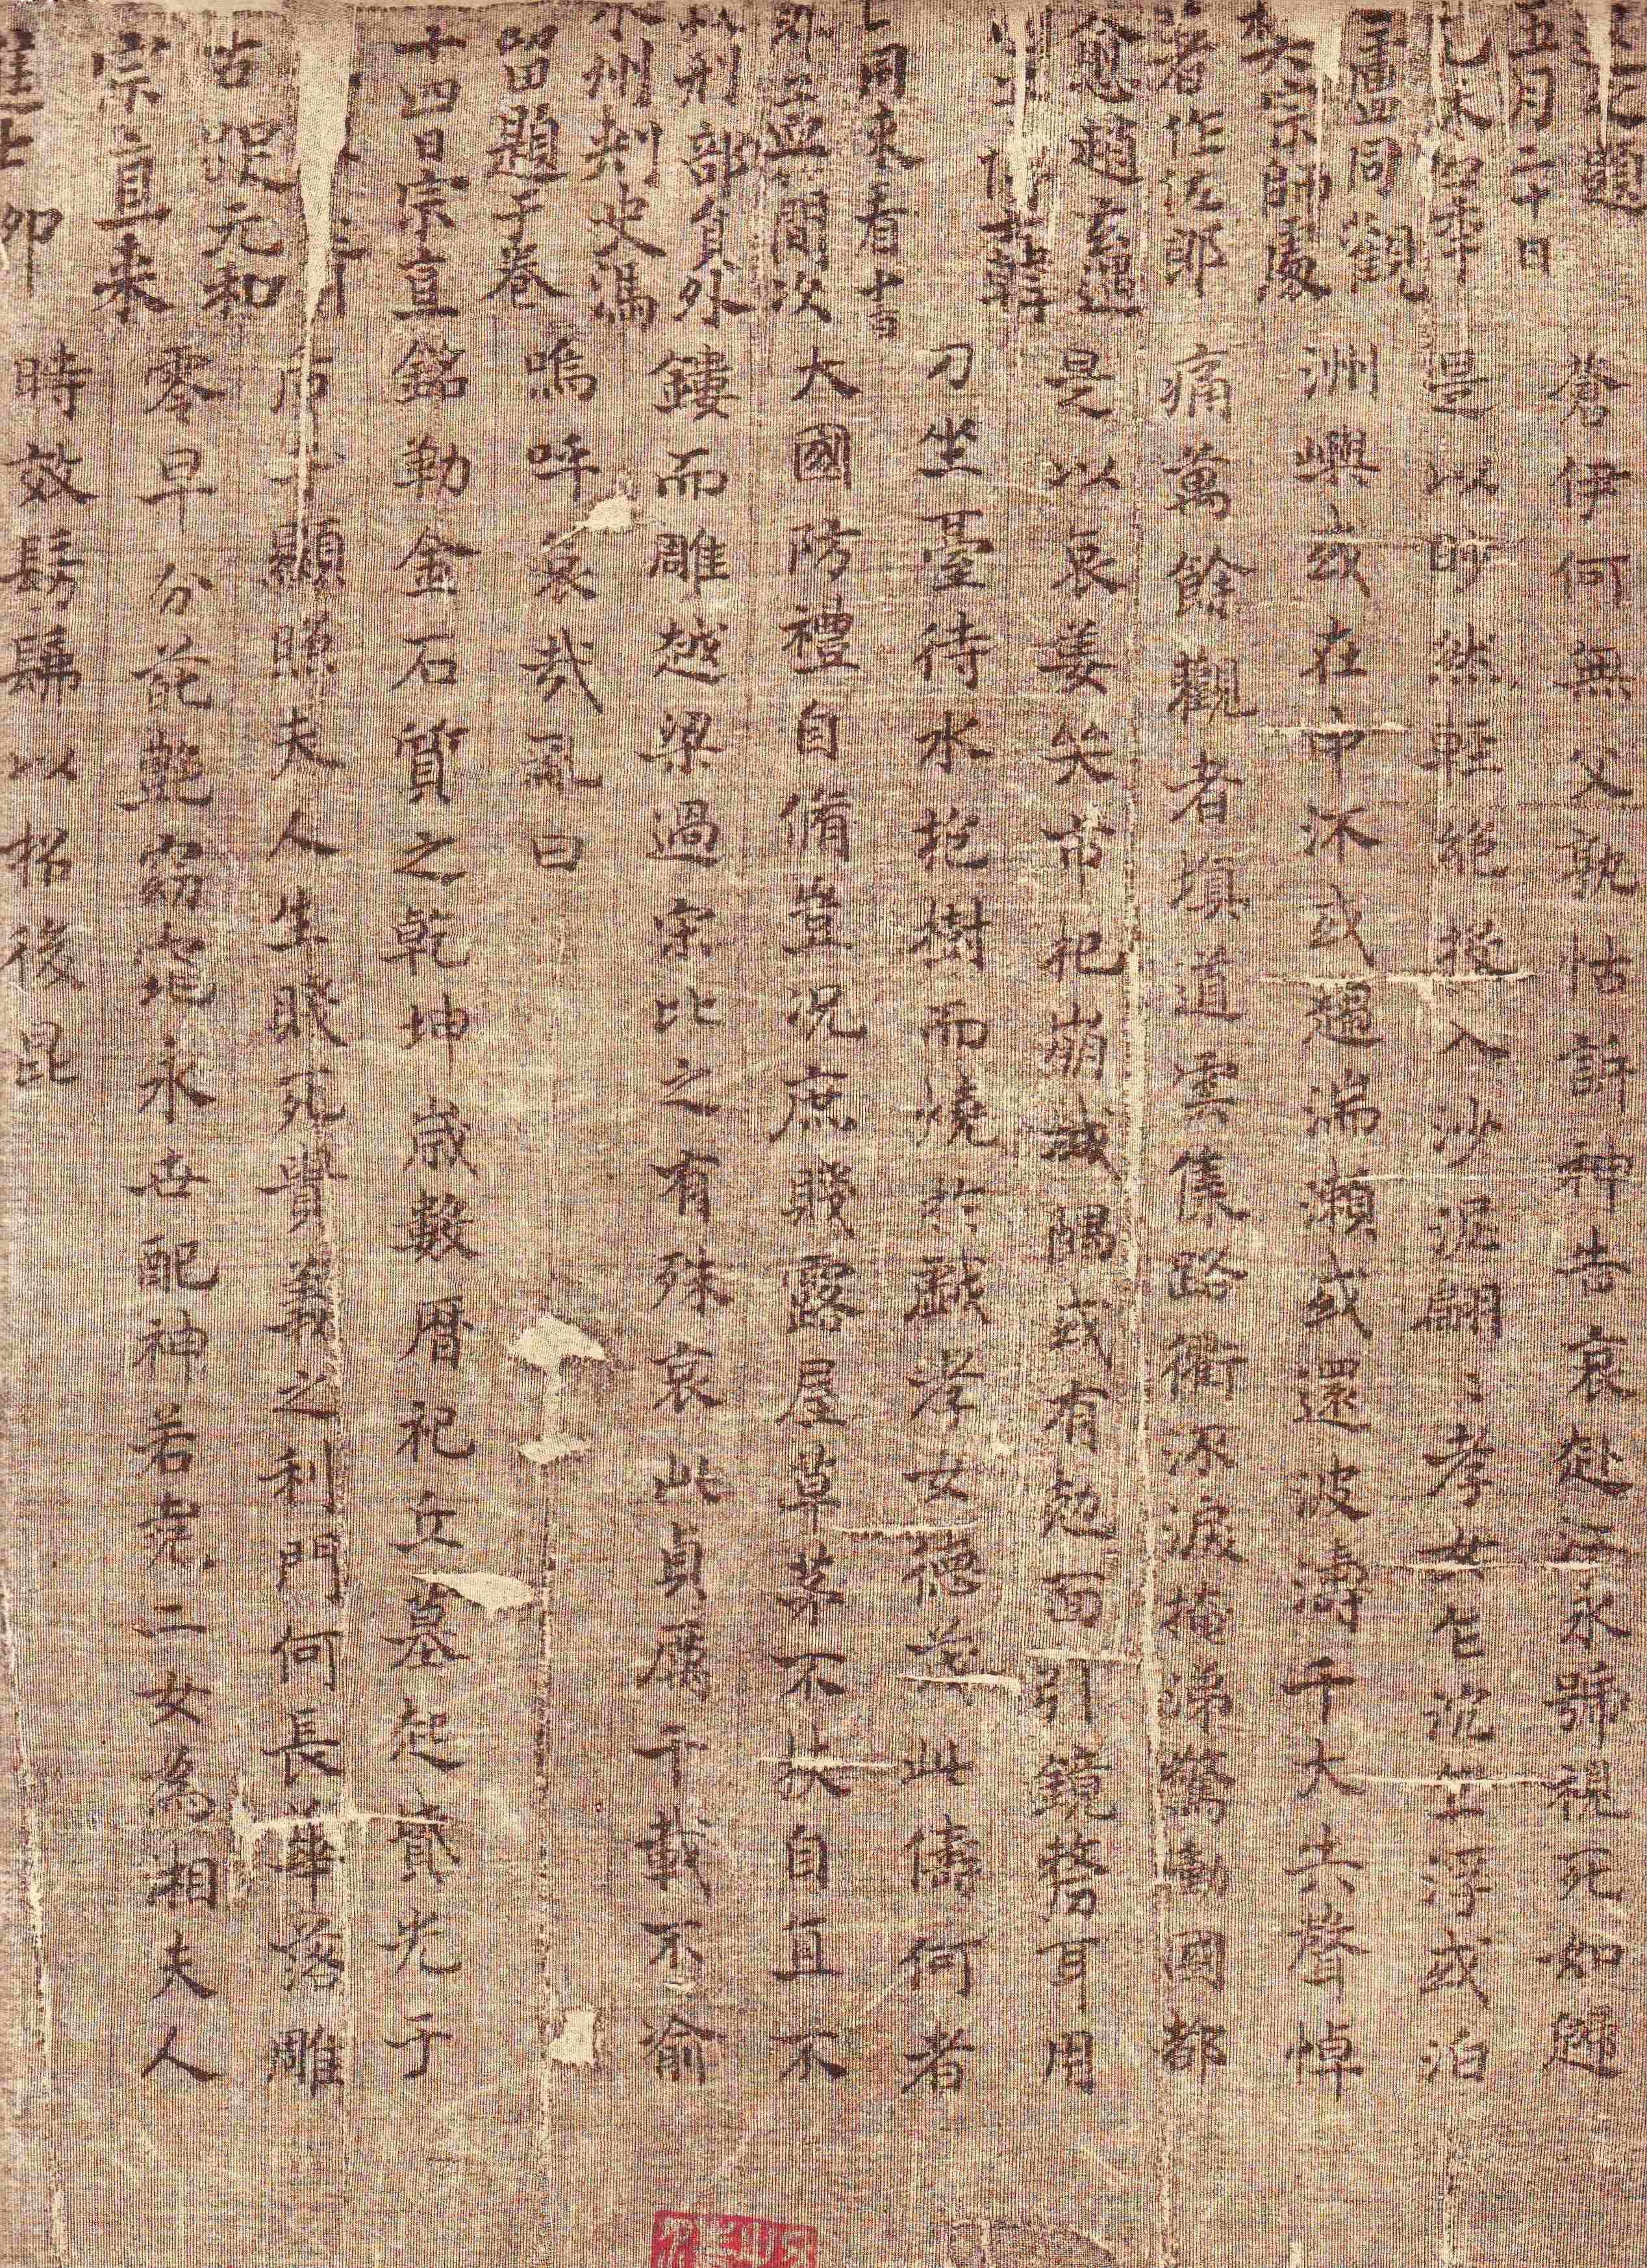 蒼伊何無父孰怙訴神告哀赴江永號視死如歸
是以眇然輕絕投入沙泥翩〻孝女乍沉乍浮或泊
洲嶼或在中沠或趨湍瀨或還波濤千夫失聲悼
痛萬餘觀者填道雲集路衢泳淚掩涕驚慟國都
是以哀姜哭市杞崩城隅或有尅面引鏡剺耳用
刀坐臺待水抱樹而燒於戲孝女德茂此儔何者
大國防禮自脩豈況庶賤露屋草茅不扶自直不
鏤而雕越梁過宋比之有殊哀此貞厲千載不渝
嗚呼哀哉亂曰
銘勒金石質之乾坤歲數曆祀丘墓起墳光于
后土顯照夫人生賤死貴義之利門何長華落雕
零早分葩艷窈窕永世配神若堯二女為湘夫人
時效髣髴以招後昆
宗直来
元和
十四日宗直
留題于卷
州刺史馮
刑部員外
孟簡次
同来看
韓
愈趙玄遇
著作佐郎
樊宗師處
士盧同觀
四年
五月二十日
退之題